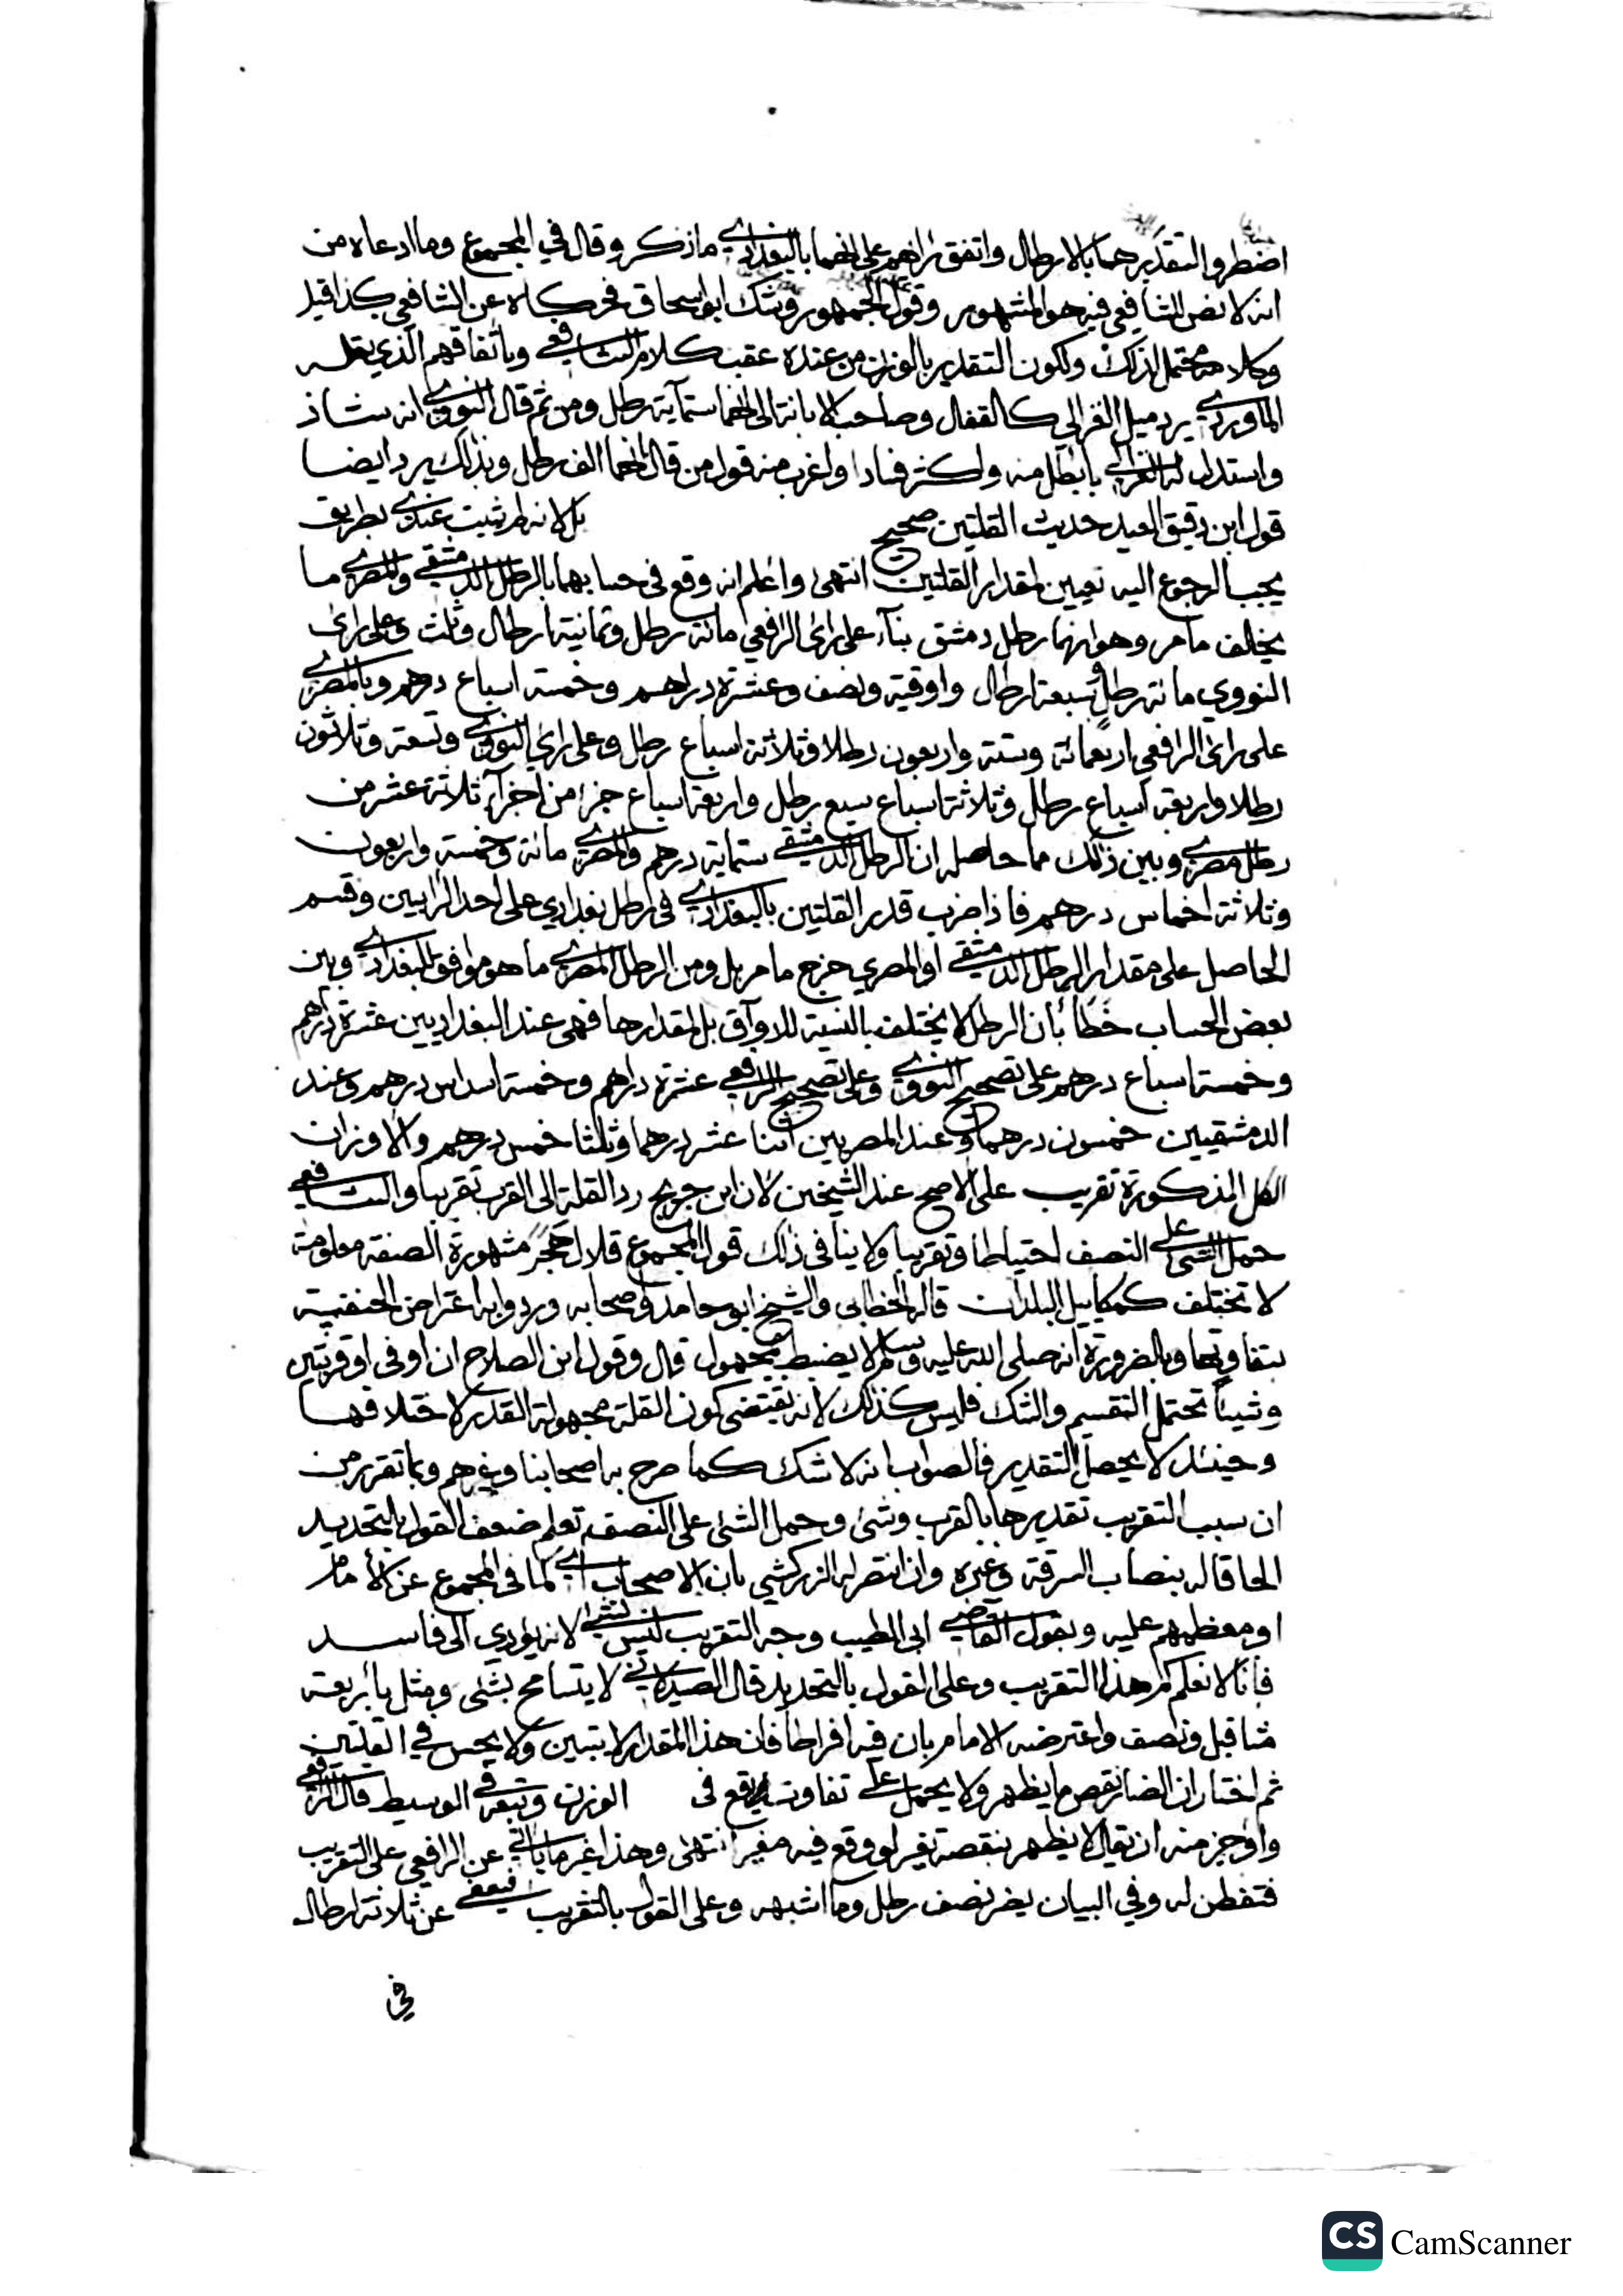 اضطروا لتقديرهما بالارطال واتفق رأيهم على انهما بالبغدادي ما ذكر وقال في المجموع وما ادعاه من
انه لا نص للشافعي فيه هو المشهور وقول الجمهور وشك ابو اسحاق فحكاه عن الشافعي كذا قيل
وكلامه محتمل لذلك ولكون التقدير بالوزن من عنده عقب كلام الشافعي وباتفاقهم الذي نقله
الماوردي يرد ميل الغزالي كالقفال وصاحب الابانة الى انهما ستماية رطل ومن ثم قال النووي انه شاذ
واستدل له الغزالي بابطل منه واكثر فسادا واغرب منه قول من قال انهما الف رطل وبذلك يرد ايضا
قول ابن دقيق العيد حديث القلتين صحيح بل لانه لم يثبت عندي بطريق
يجب الرجوع اليه تعيين لمقدار القلتين انتهى واعلم انه وقع في حسابهما بالرطل الدمشقي والمصري ما
يخالف ما مر وهو انهما رطل دمشق بناء على راى الرافعي مائة رطل وثمانية ارطال وثلث وعلى راى
النووي مائة رطل وسبعة ارطال واوقية ونصف وعشرة دراهم وخمسة اسباع درهم وبالمصري
على راى الرافعي اربعمائة وستة واربعون رطلا وثلاثة اسباع رطل وعلى راي النووي وتسعة وثلاثون
رطلا واربعة اسباع رطل وثلاثة اسباع سبع رطل واربعة اسباع جزء من اجزآء ثلاثة عشر من
رطل مصري وبين ذلك مما حاصله ان الرطل الدمشقي ستماية درهم والمصري مائة وخمسة واربعون
وثلاثة اخماس درهم فاذا ضرب قدر القلتين بالبغدادي في ارطل بغدادي على احد الرايين وقسم
الحاصل على مقدار الرطل الدمشقي او المصري خرج ما مر بل ومن الرطل المصري ما هو موافق للبغدادي وبين
بعض الحساب خطأ بأن الرطل لا يختلف بالنسبة للاوآق بل لمقدارها فهي عند البغداديين عشرة دراهم
وخمسة اسباع درهم على تصحيح النووي وعلى تصحيح الرافعي عشرة دراهم وخمسة اسداس درهم وعند
الدمشقيين خمسون درهما وعند المصريين اثنا عشر درهما وثلثا خمس درهم والاوزان
الكل المذكورة تقريب على الاصح عند الشيخين لان ابن جريج رد القلة الى القرب تقريبا والشافعي
حمل الشئ على النصف احتياطا وتقريبا ولا ينافي ذلك قول المجموع قلال هجر مشهورة الصنعة معلومة
لا تختلف كمكاييل البلدان قاله الخطابي والشيخ ابو حامد واصحابه وردوا به اعتراض الحنفية
بتفاوتها وبالضرورة انه صلى الله عليه وسلم لا يضبط بمجهول قال وقول ابن الصلاح ان او في او قربتين
وشيئا تحتمل التقسيم والشك فليس كذلك لانه يقتضى كون القلة مجهولة القدر لاختلافها
وحينئذ لا يحصل التقدير فالصواب انه لا شك كما صرح به اصحابنا وغيرهم وبما تقرر من
ان سبب التقريب تقديرها بالقرب وشئ وحمل الشئ على النصف تعلم ضعف القول بالتحديد
الحاقا له بنصاب السرقة وغيره وان انتصر له الزركشي بان الاصحاب اي كما في المجموع عن الامام
او معظمهم عليه وبقول القاضي ابى الطيب وجه التقريب ليس بشئ لانه يؤدي الى فاسد
فإنا لا نعلم كم هذا التقريب وعلى القول بالتحديد قال الصيدلاني لا يتسامح بشئ ومثل بأربعة
مثاقيل ونصف واعترضه الامام بان فيه افراطا فان هذا المقدار لا يتبين ولا يحس في القلتين
ثم اختار ان الضائر نقص ما يظهر ولا يحمل على تفاوت يقع في الوزن وتبعه في الوسيط قال الرافعي
واوجز منه ان يقال لا يظهر بنقصه تغير لو وقع فيه مغير انتهى وهذا غير ما ياتي عن الرافعي على التقريب
فتفطن له وفي البيان يضر نصف رطل وما اشبهه وعلى القول بالتقريب فيعفى عن ثلاثة ارطال
في
CS CamScanner